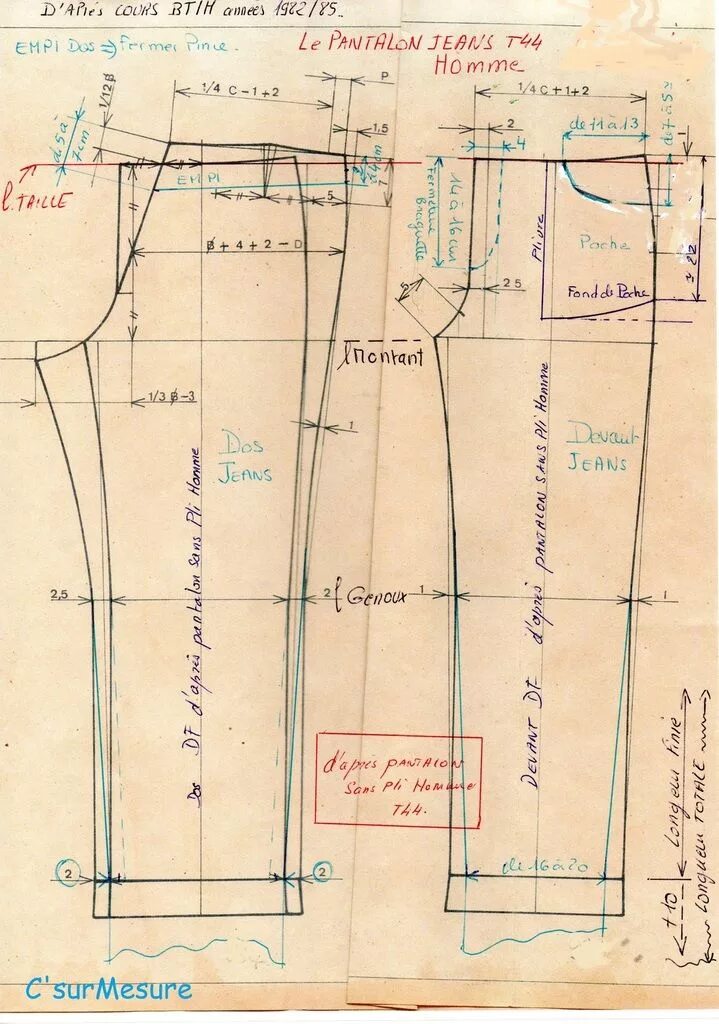 D'APRÈS COURS BTIH années 1982/85..
EMPI Dos => Fermer Pince.
Le PANTALON JEANS T44
HOMME
1/4 C-1+2
P
1,5
de 5 à
7cm
l.TAILLE
EMPI
5
1/4 C+1+2
2
4
de 11 à 13
1
14 à 16 cm
Fermeture
Braguette
Pliure
Poche
Fond de Poche
22
25
5
l montant
1
Dos
JEANS
Devant
JEANS
Dos DF d'après pantalon sans Pli Homme
DEVANT DF d'après PANTALON SANS Pli Homme
2,5
2
l Genoux
1
1
d'après PANTALON
Sans Pli Homme
T44.
2
2
de 16 à 20
+10
Longueur Finie
Longueur TOTALE
C'surMesure